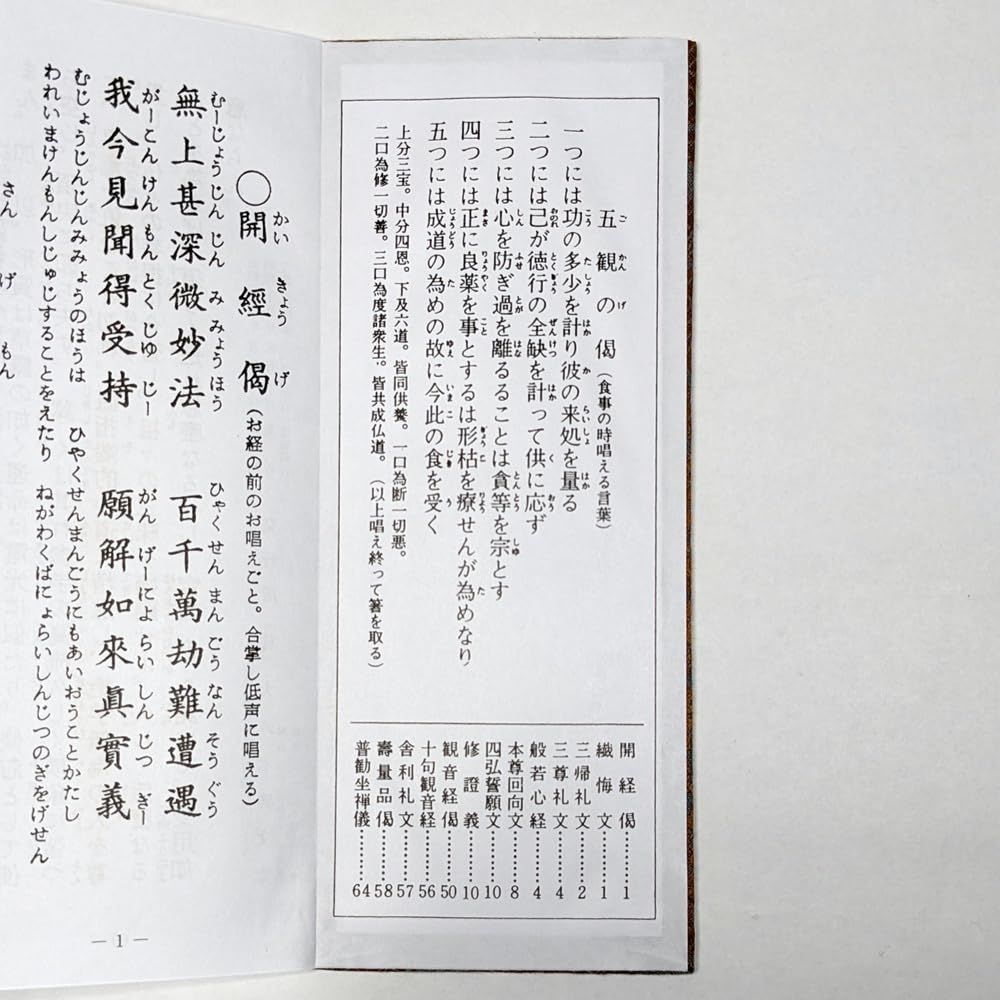 五観の偈（食事の時唱える言葉）
一つには功の多少を計り彼の来処を量る
二つには己が徳行の全缺を計って供に応ず
三つには心を防ぎ過を離るることは貪等を宗とす
四つには正に良薬を事とするは形枯を療せんが為めなり
五つには成道の為めの故に今此の食を受く
上分三宝。中分四恩。下及六道。皆同供養。一口為断一切悪。
二口為修一切善。三口為度諸衆生。皆共成仏道。（以上唱え終って箸を取る）
開経偈……………1
懺悔文……………1
三帰礼文…………2
三尊礼文…………4
般若心経…………4
本尊回向文………8
四弘誓願文………10
修證義……………10
観音経偈…………50
十句観音経………56
舎利礼文…………57
壽量品偈…………58
普勧坐禅儀………64
○開經偈（お経の前のお唱えごと。合掌し低声に唱える）
かいきょうげ
むーじょうじんじんみみょうほう　ひゃくせんまんごうなんそうぐう
無上甚深微妙法　百千萬劫難遭遇
がーこんけんもんとくじゅじー　がんげーにょらいしんじつぎー
我今見聞得受持　願解如來眞實義
むじょうじんじんみみょうのほうは　ひやくせんまんごうにもあいおうことかたし
われいまけんもんしじゅじすることをえたり　ねがわくばにょらいしんじつのぎをげせん
さんげもん
―1―